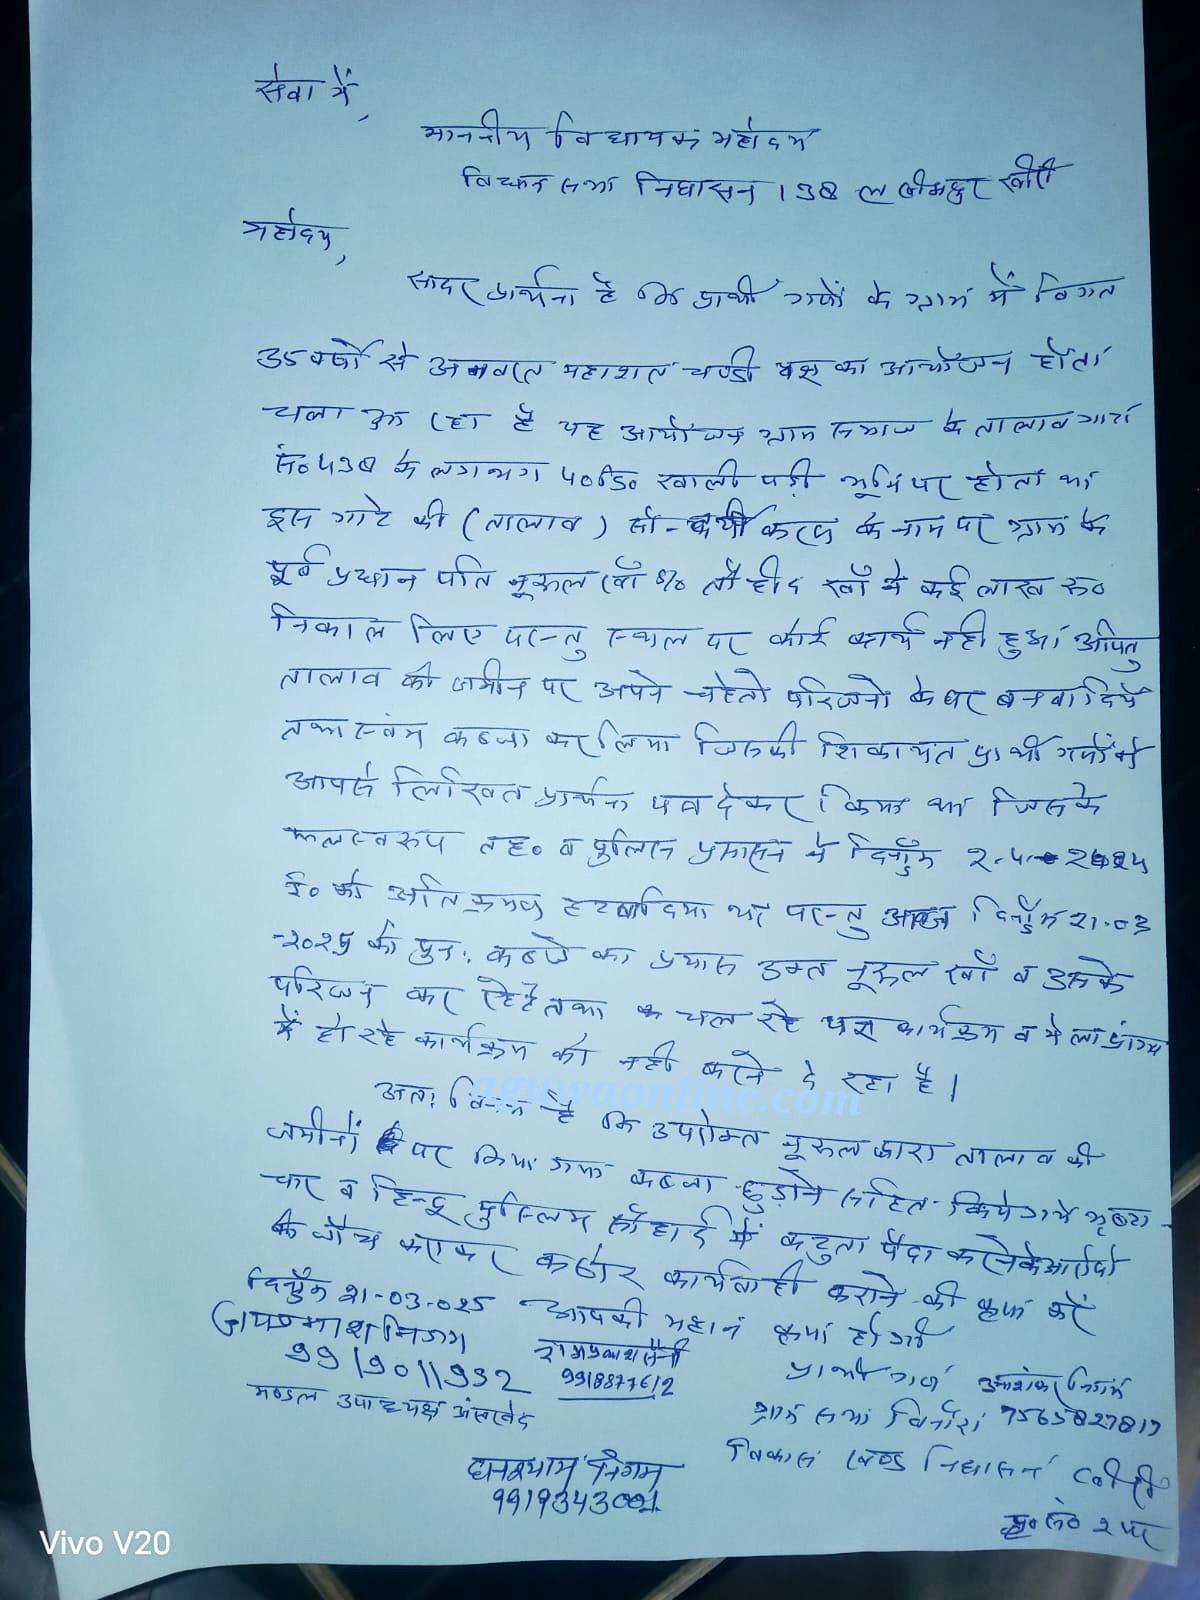 सेवा में,
माननीय विधायक महोदय
विधान सभा निघासन 138 लखीमपुर खीरी
महोदय,
सादर प्रार्थना है कि प्रार्थी गणों के ग्राम में विगत
35 वर्षो से अनवरत महाशत चण्डी यज्ञ का आयोजन होता
चला आ रहा है यह आयोजन ग्राम समाज के तालाव गाटा
सं० 438 के लगभग ५० डि० खाली पड़ी भूमि पर होता था
इस गाटे की (तालाव) सौन्दर्यी करण के नाम पर ग्राम के
पूर्व प्रधान पति नूरूल खाँ S/o तौहीद खाँ ने कई लाख रू०
निकाल लिए परन्तु स्थल पर कोई कार्य नही हुआ अपितु
तालाव की जमीन पर अपने चहेतो परिजनो के घर बनवा दिये
तथा स्वंम कब्जा कर लिया जिसकी शिकायत प्रार्थी गणों ने
आपसे लिखित प्रार्थना पत्र देकर किया था जिसके
फलस्वरूप तह० व पुलिस प्रशासन ने दिनाँक
ई० को अतिक्रमण हटवा दिया था परन्तु आज दिनाँक 21.03
-2025 को पुनः कब्जे का प्रयास उक्त नूरूल खाँ व उसके
परिजन कर रहे है तथा चल रहे यज्ञ कार्यक्रम व मेला प्रांगण
में हो रहे कार्यक्रम को नही करने दे रहा है।
अतः विनम्र है कि उपरोक्त नूरूल द्वारा तालाव की
जमीनों पर किया गया कब्जा छुड़ाने सहित किये गये भृष्टा-
चार व हिन्दू मुस्लिम सौहार्द में कटुता पैदा करने के आरोपो
की जाँच कराकर कठोर कार्यवाही कराने की कृपा करें
दिनाँक 21-03-025 आपकी महान कृपा होगी
जयप्रकाश निगम
9919011932
मण्डल उपाध्यक्ष
रामप्रकाश सैनी
9918877612
प्रार्थी गण
निगम
ग्राम सभा 7565827817
विकास खण्ड निघासन खीरी
घनश्याम निगम
9919343001
पृ० सं० २ पर
aguwaonline.com
Vivo V20